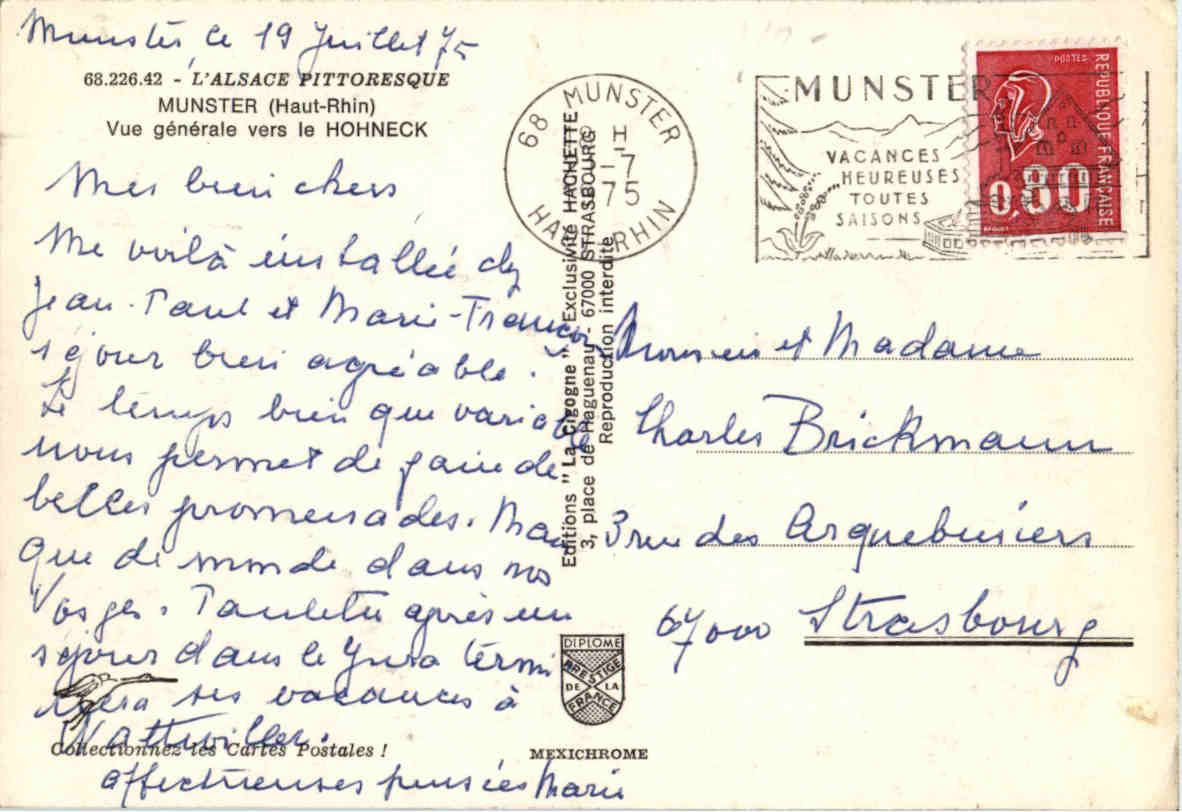 Munster le 19 Juillet 75
68.226.42 - L'ALSACE PITTORESQUE
MUNSTER (Haut-Rhin)
Vue générale vers le HOHNECK
Mes bien chers
Me voilà installée chez
Jean-Paul et Marie-Françoise,
séjour bien agréable.
Le temps bien que variable
nous permet de faire de
belles promenades. Mais
que de monde dans nos
Vosges. Paulette après un
séjour dans le Jura termi
nera ses vacances à
Wattwiller.
affectueuses pensées Marie
Collectionnez les Cartes Postales !
Editions "La Cigogne" - Exclusivité HACHETTE
3, place de Haguenau - 67000 STRASBOURG
Reproduction interdite
DIPLOME
PRESTIGE
DE LA
FRANCE
MEXICHROME
68 MUNSTER
H
-7
75
HAUT-RHIN
MUNSTER
VACANCES
HEUREUSES
TOUTES
SAISONS
POSTES
REPUBLIQUE FRANÇAISE
0,80
Monsieur et Madame
Charles Brickmann
3 rue des Arquebusiers
67000 Strasbourg